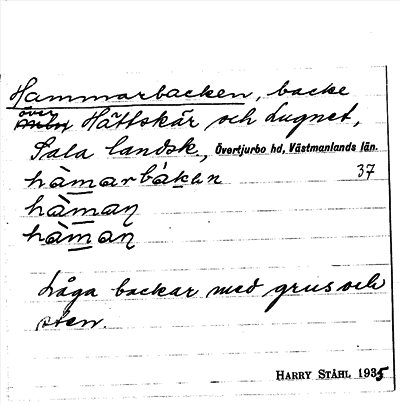 Hammarbacken, backe
över Hättskär och Lugnet,
Sala landsk., Övertjurbo hd, Västmanlands län.
hàmarbákan 37
hàmaŋ
hàmaŋ
Låga backar med grus och
sten.
HARRY STÅHL 1935